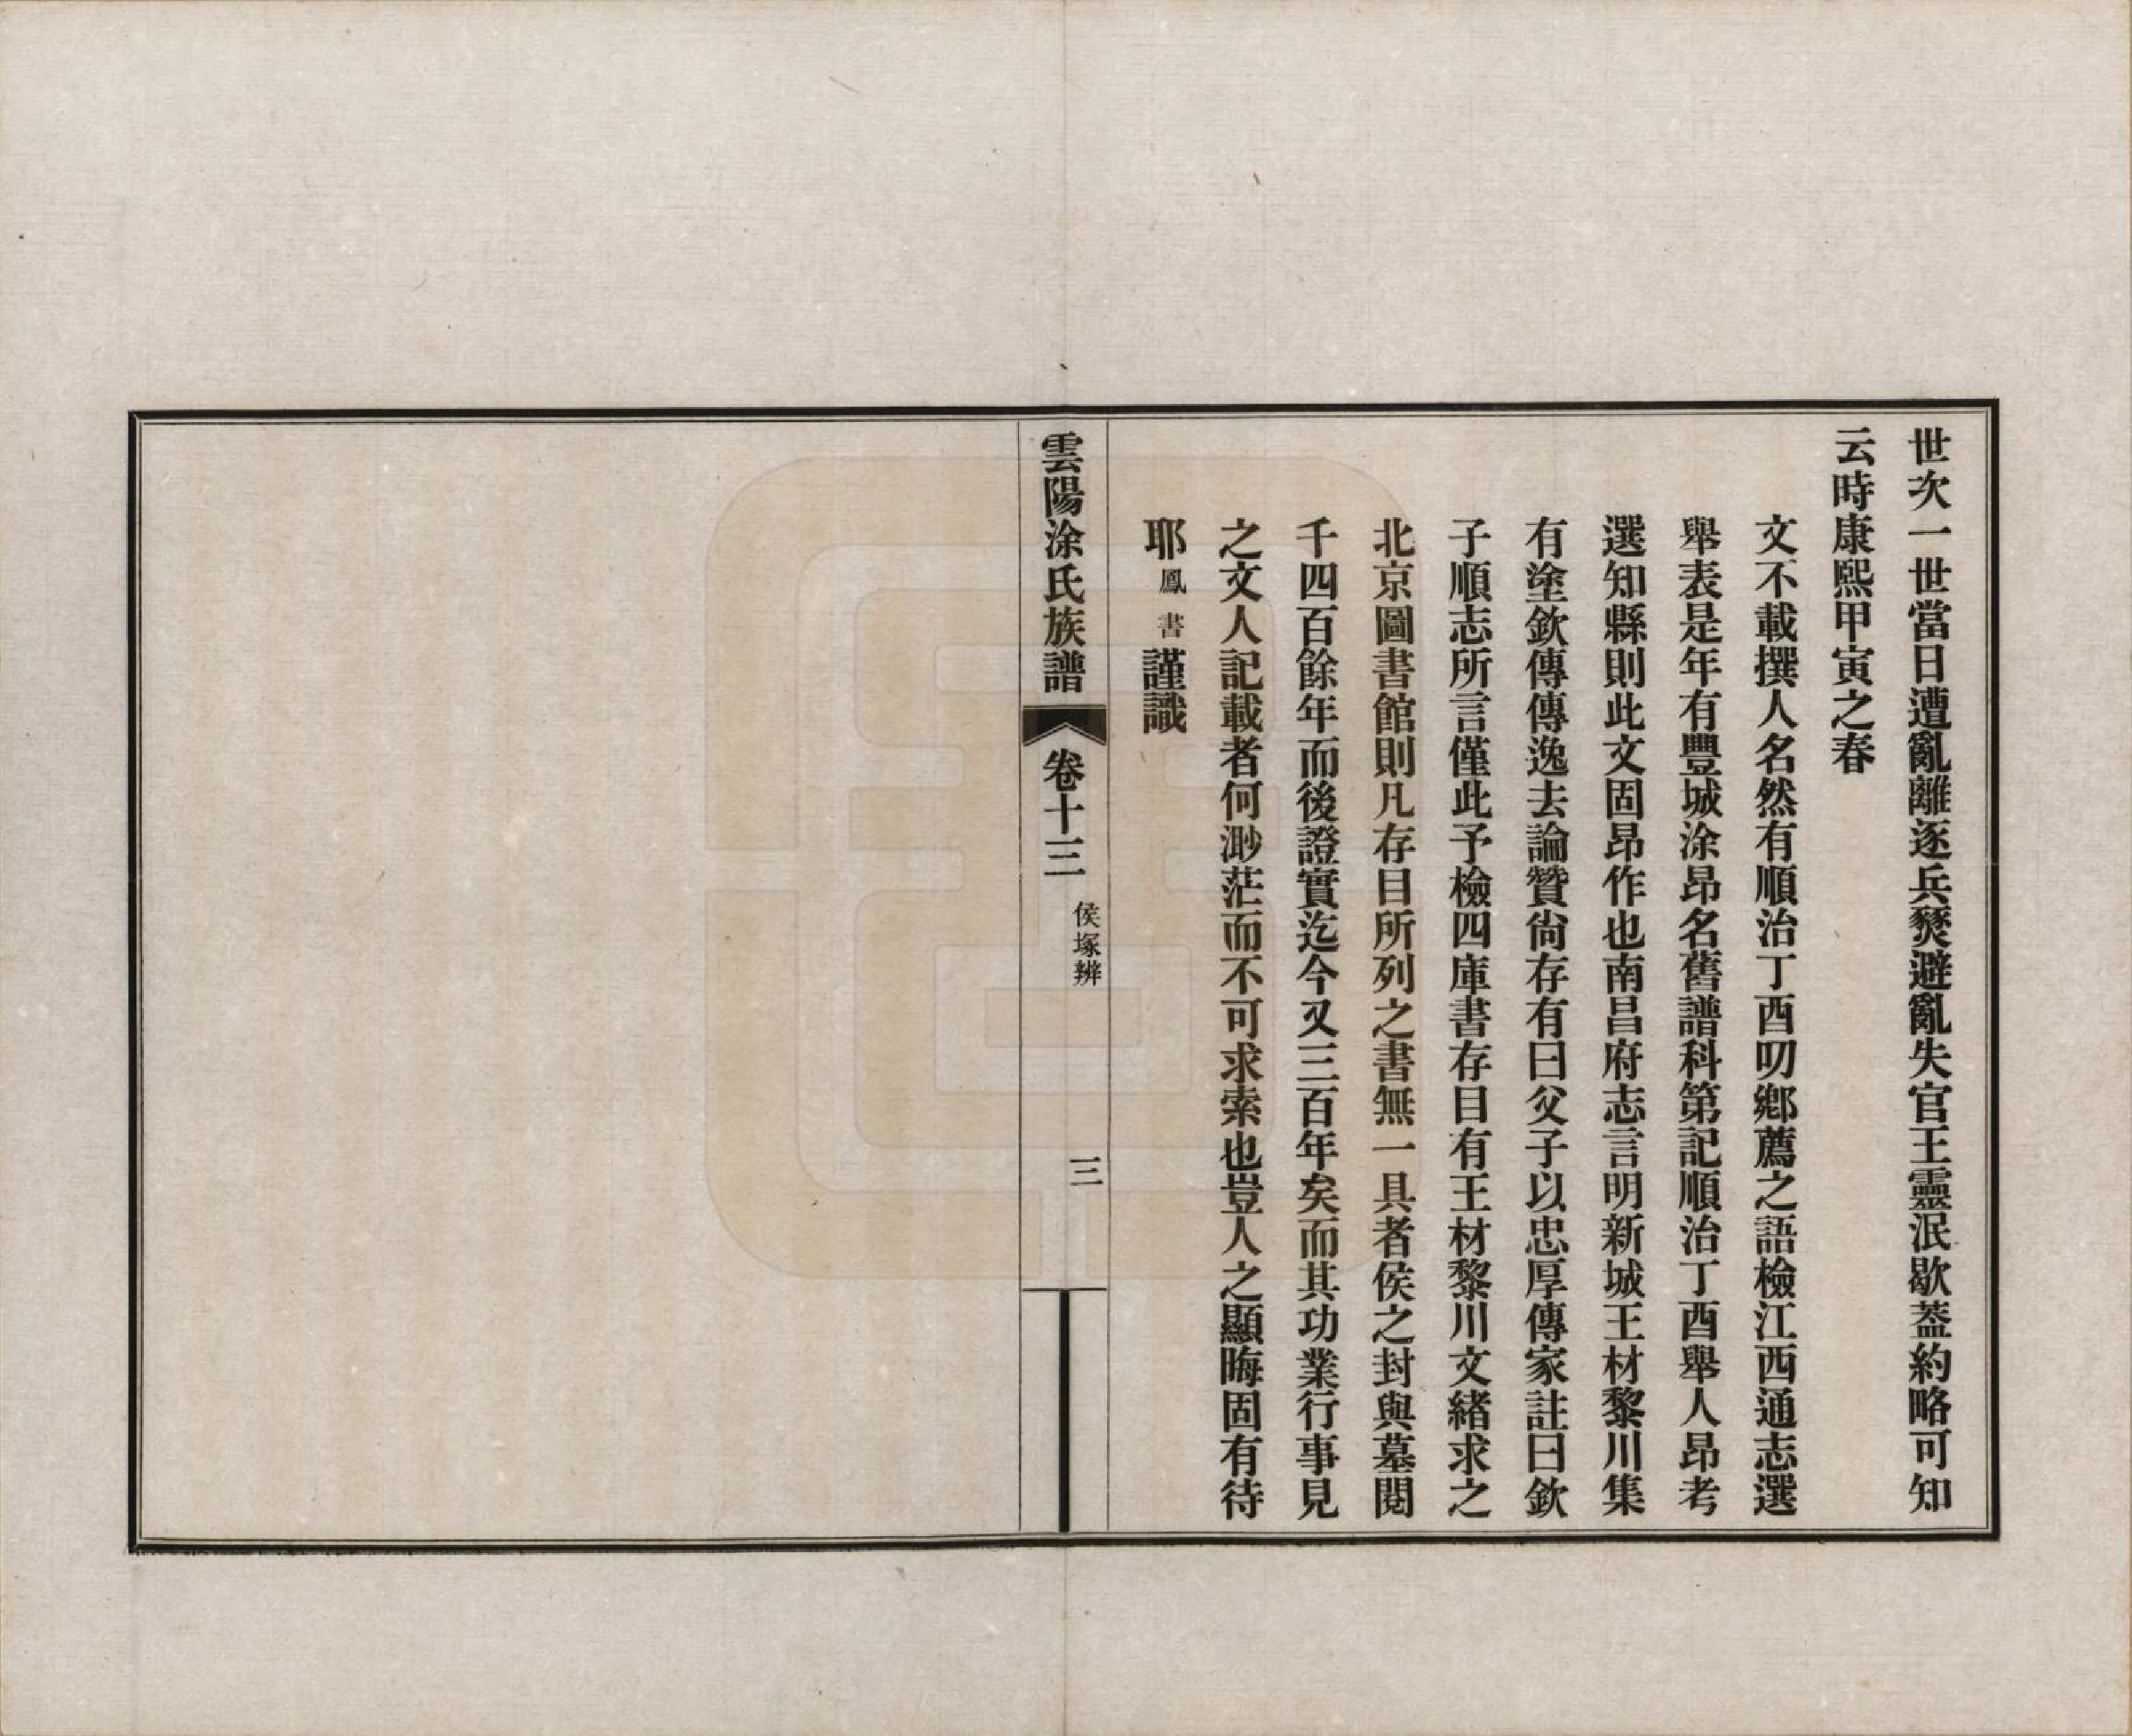 世次一世當日遭亂離逐兵燹避亂失官王靈泯歇葢約略可知
云時康熙甲寅之春
文不載撰人名然有順治丁酉叨鄕薦之語檢江西通志選
舉表是年有豐城涂昂名舊譜科第記順治丁酉舉人昂考
選知縣則此文固昂作也南昌府志言明新城王材黎川集
有塗欽傳傳逸去論贊尙存有曰父子以忠厚傳家註曰欽
子順志所言僅此予檢四庫書存目有王材黎川文緖求之
北京圖書館則凡存目所列之書無一具者侯之封與墓閱
千四百餘年而後證實迄今又三百年矣而其功業行事見
之文人記載者何渺茫而不可求索也豈人之顯晦固有待
耶鳳書謹識
雲陽涂氏族譜
卷十三
侯塚辨
三